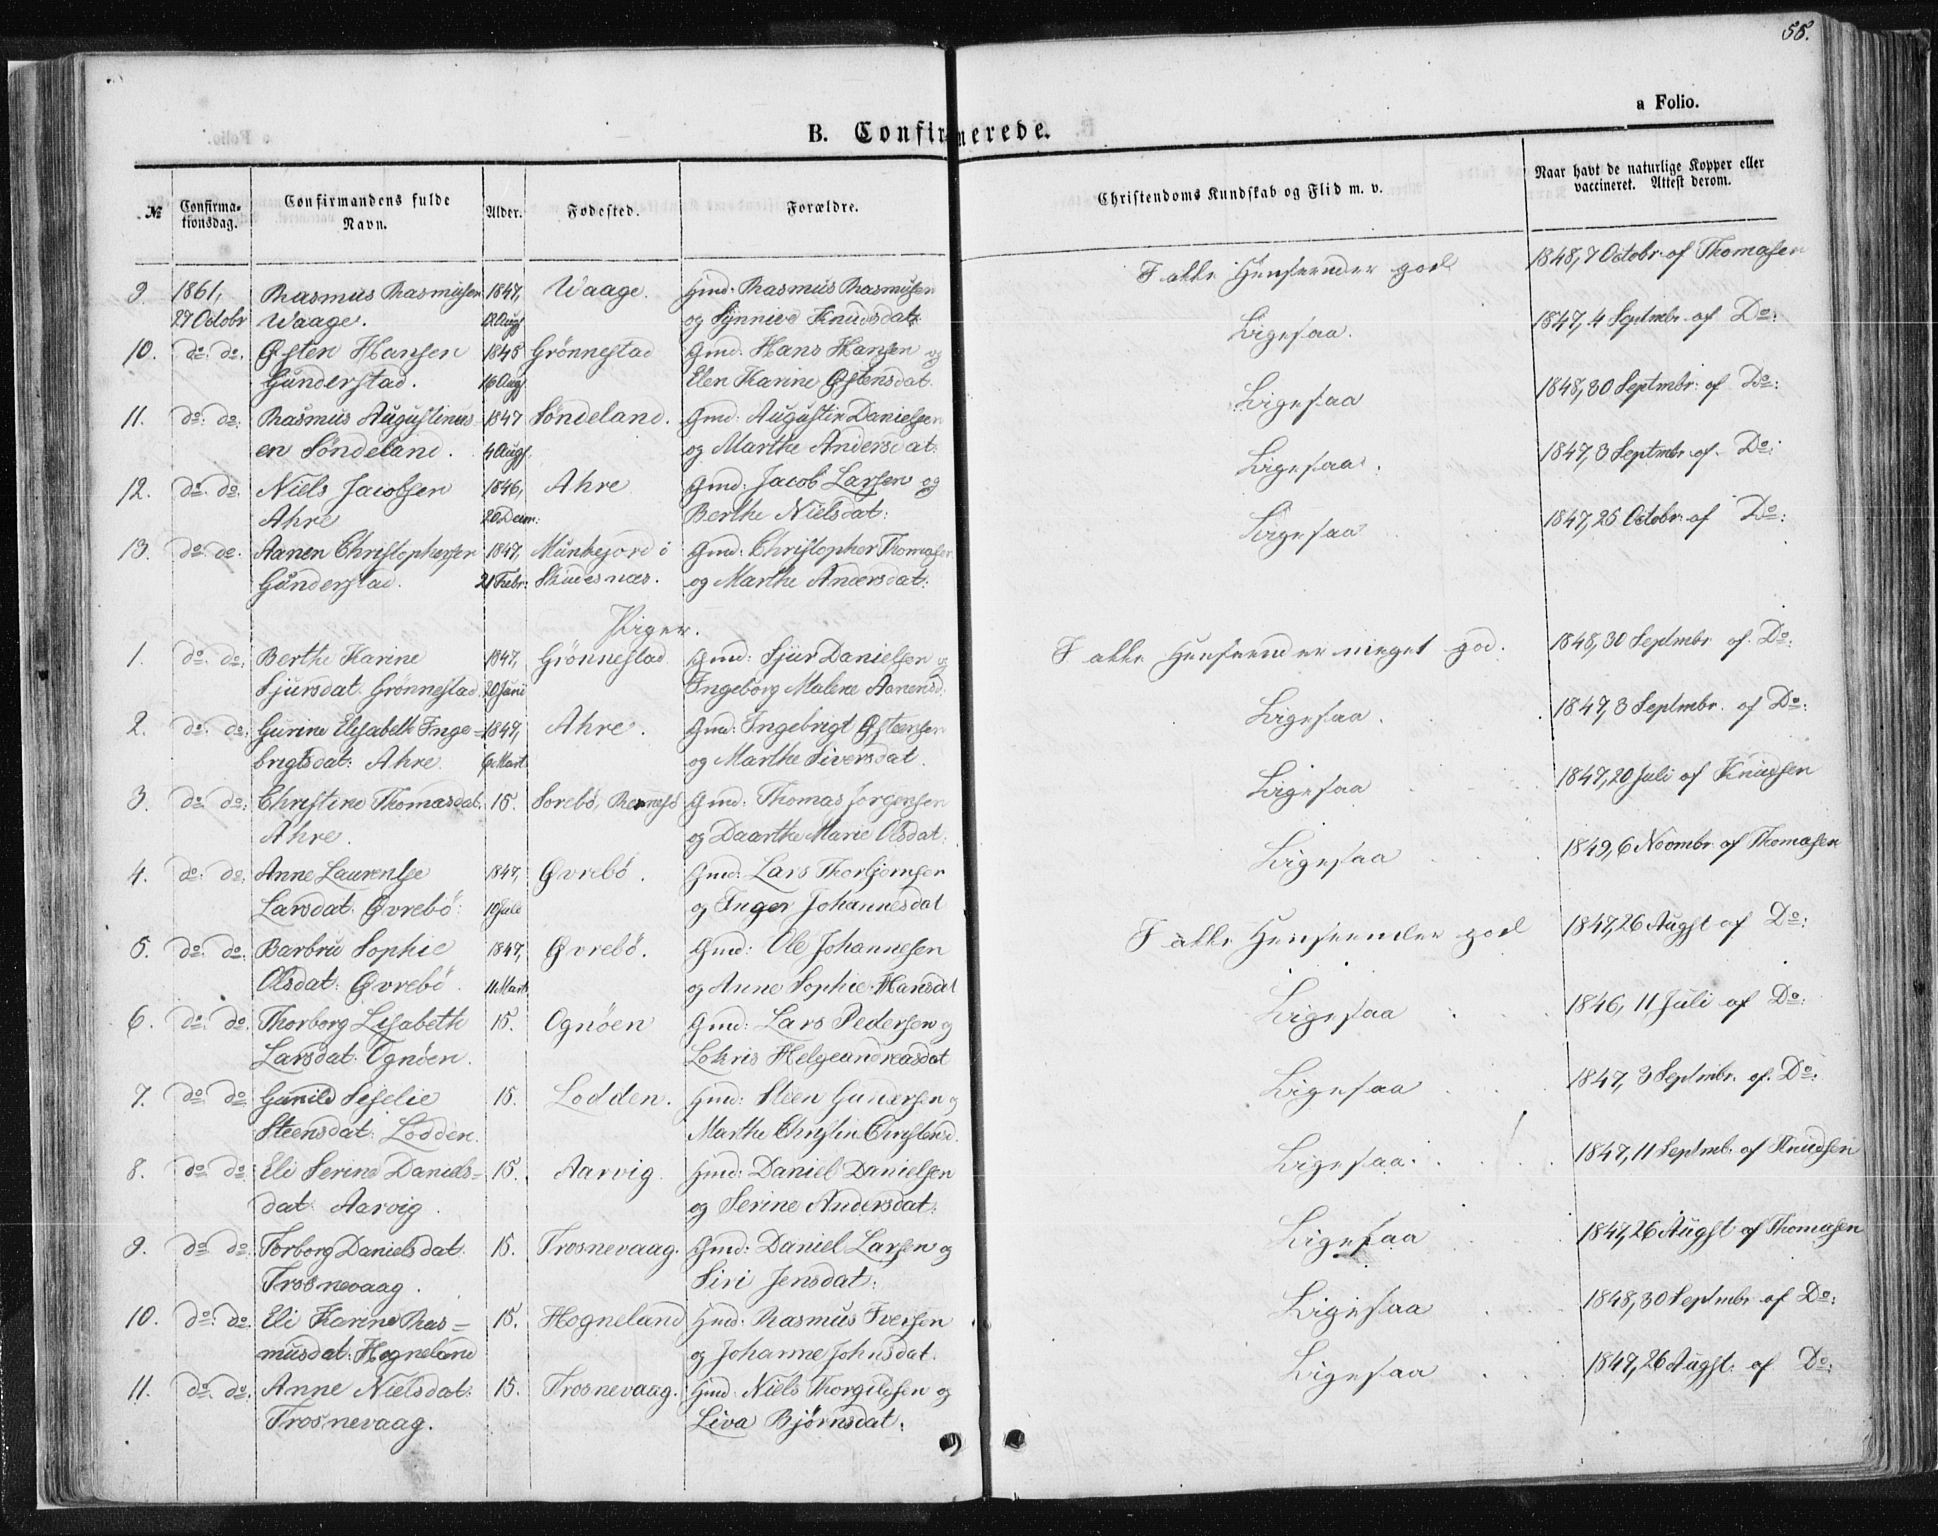 55.
a Folio.
B. Confirmerede.
№ Confirma-tionsdag. Confirmandens fulde Navn. Alder. Fødested. Forældre. Christendoms Kundskab og Flid m. v. Naar havt de naturlige Kopper eller vaccineret. Attest derom.
9. 1861, Rasmus Rasmusen 1847, Waage. Gmd: Rasmus Rasmusen I alle Henseender god 1848, 7 Octobr. af Thomasen
27 Octobr Waage. Augs og Synneve Knudsdat:
10. do: do: Østen Hansen 1845 Grønnestad Gmd: Hans Hansen og Ligesaa. 1847, 4 Septmbr. af Do:
Gunderstad. 16 Augs Elen Karine Østensdat.
11. do: do: Rasmus Augustinus- 1847 Søndeland. Gmd: Augustin Danielsen Ligesaa 1848, 30 Septmbr: af Do:
en Søndeland. 4 Augs. og Marthe Andersdat:
12. do: do: Niels Jacobsen 1846, Ahre Gmd: Jacob Larsen og Ligesaa. 1847, 3 Septmbr. af Do:
Ahre 20 Decm: Berthe Nielsdat:
13. do: do: Aanen Christophersen 1847, Munkejord i Gmd: Christopher Thomasen Ligesaa 1847, 25 Octobr. af Do:
Gunderstad. 21 Febr: Skudesnæs. og Marthe Andersdat:
Piger.
1. do: do: Berthe Karine 1847, Grønnestad Gmd: Sjur Danielsen og I alle Henseender meget god. 1848, 30 Septmbr. af Do:
Sjursdat: Grønnestad. 20 Juni Ingeborg Malene Aanensd.
2. do: do: Gurine Elisabeth Inge- 1847, Ahre. Gmd: Ingebrigt Østensen Ligesaa. 1847, 3 Septmbr. af Do:
brigtsdat: Ahre 6 Mart og Marthe Siversdat.
3. do: do: Christine Thomasdat: 15. Sorebø, Gmd: Thomas Jørgensen Ligesaa 1847, 20 Juli af Knudsen
Ahre. og Daarthe Marie Olsdat:
4. do: do: Anne Laurentse 1847, Øvrebø. Gmd: Lars Thorbjørnsen Ligesaa 1849, 6 Novmbr. af Thomasen
Larsdat: Øvrebø: 10 Juli og Inger Johannesdat
5. do: do: Barbru Sophie 1847, Øvrebø. Gmd: Ole Johannesen I alle Henseender god 1847, 26 Augst af Do:
Olsdat: Øvrebø. 11 Marts og Anne Sophie Hansdat
6. do: do: Thorborg Lisabeth 15. Ognøen Gmd: Lars Pedersen og Ligesaa 1846, 11 Juli af Do:
Larsdat: Ognøen. Lokris Helgeandreasdat
7. do: do: Gunild Seselie 15. Lodden. Hmd: Steen Gundersen og Ligesaa 1847, 3 Septmbr. af Do:
Steensdat: Lodden. Marthe Christin Christensd.
8. do: do: Eli Serine Daniels- 15. Aarvig Hmd: Daniel Danielsen Ligesaa. 1847, 11 Septmb. af Knudsen
dat: Aarvig. og Serine Andersdat:
9. do: do: Torborg Danielsdat. 15. Trosnevaag. Gmd: Daniel Larsen og Ligesaa 1847, 26 Augst af Thomasen
Trosnevaag. Siri Jensdat:
10. do: do: Eli Karine Ras- 15. Hogneland Hmd: Rasmus Iversen Ligesaa 1848, 30 Septmbr af Do:
musdat: Hogneland og Johanne Johnsdat.
11. do: do: Anne Nielsdat: 15. Trosnevaag. Hmd: Niels Thorgilsen og Ligesaa 1847, 26 Augst: af Do:
Trosnevaag. Liva Bjørnsdat.